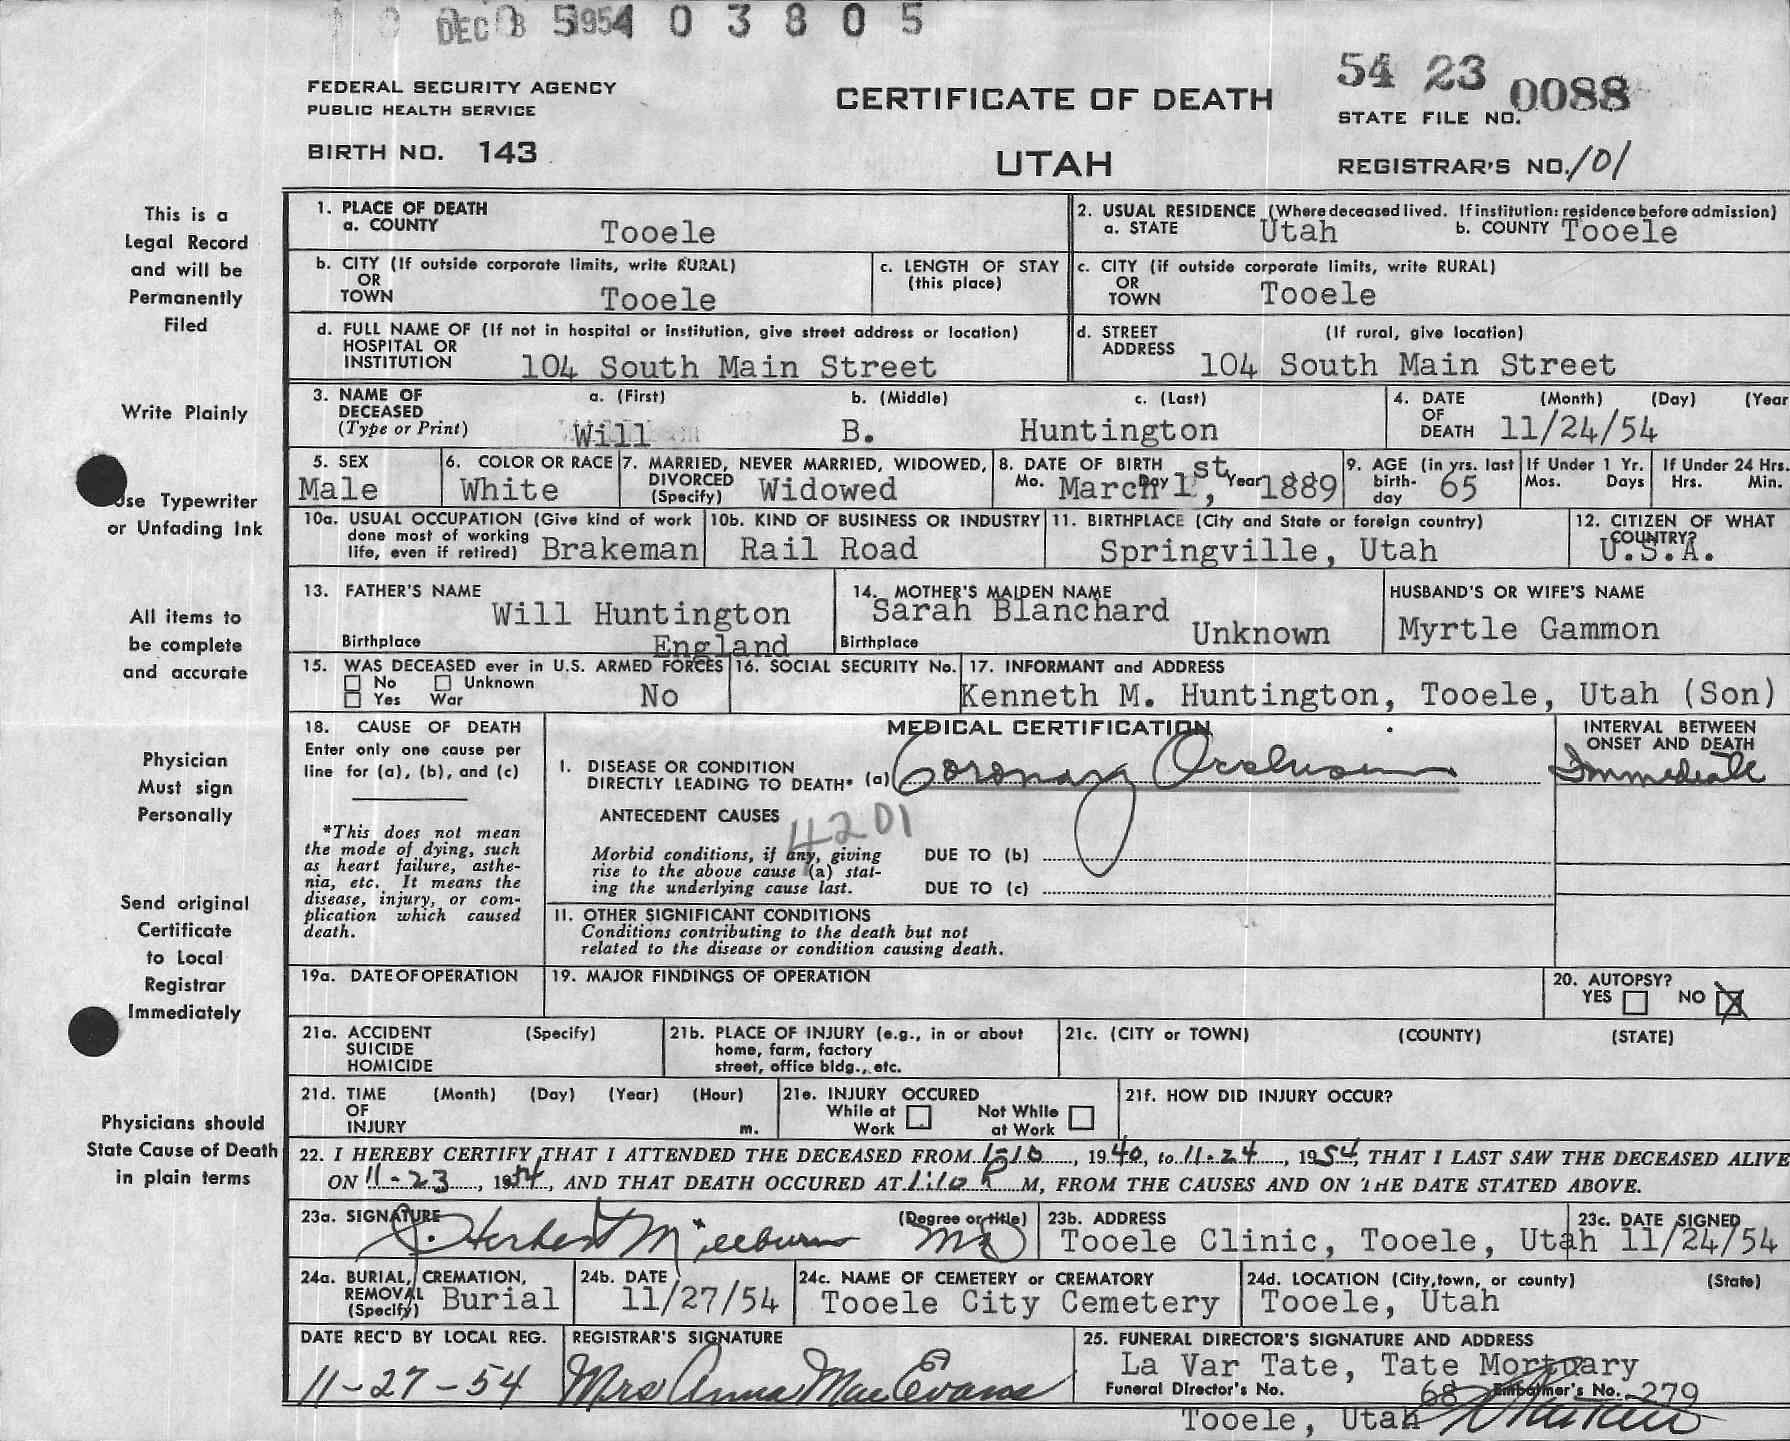 DEC 8 1954 0 3 8 0 5
54 23 0088
FEDERAL SECURITY AGENCY
PUBLIC HEALTH SERVICE
CERTIFICATE OF DEATH
STATE FILE NO.
BIRTH NO. 143
UTAH
REGISTRAR'S NO. 101
This is a
Legal Record
and will be
Permanently
Filed
Write Plainly
Use Typewriter
or Unfading Ink
All items to
be complete
and accurate
Physician
Must sign
Personally
Send original
Certificate
to Local
Registrar
Immediately
Physicians should
State Cause of Death
in plain terms
1. PLACE OF DEATH
a. COUNTY Tooele
2. USUAL RESIDENCE (Where deceased lived. If institution: residence before admission)
a. STATE Utah b. COUNTY Tooele
b. CITY (If outside corporate limits, write RURAL)
OR
TOWN Tooele
c. LENGTH OF STAY
(this place)
c. CITY (if outside corporate limits, write RURAL)
OR
TOWN Tooele
d. FULL NAME OF (If not in hospital or institution, give street address or location)
HOSPITAL OR
INSTITUTION 104 South Main Street
d. STREET (If rural, give location)
ADDRESS 104 South Main Street
3. NAME OF a. (First) b. (Middle) c. (Last)
DECEASED
(Type or Print) Will B. Huntington
4. DATE (Month) (Day) (Year
OF
DEATH 11/24/54
5. SEX
Male
6. COLOR OR RACE
White
7. MARRIED, NEVER MARRIED, WIDOWED,
DIVORCED
(Specify) Widowed
8. DATE OF BIRTH
Mo. Day Year
March 1st, 1889
9. AGE (in yrs. last
birth-
day 65
If Under 1 Yr.
Mos. Days
If Under 24 Hrs.
Hrs. Min.
10a. USUAL OCCUPATION (Give kind of work
done most of working
life, even if retired) Brakeman
10b. KIND OF BUSINESS OR INDUSTRY
Rail Road
11. BIRTHPLACE (City and State or foreign country)
Springville, Utah
12. CITIZEN OF WHAT
COUNTRY?
U.S.A.
13. FATHER'S NAME
Will Huntington
Birthplace England
14. MOTHER'S MAIDEN NAME
Sarah Blanchard
Birthplace Unknown
HUSBAND'S OR WIFE'S NAME
Myrtle Gammon
15. WAS DECEASED ever in U.S. ARMED FORCES
No Unknown
Yes War No
16. SOCIAL SECURITY No.
17. INFORMANT and ADDRESS
Kenneth M. Huntington, Tooele, Utah (Son)
18. CAUSE OF DEATH
Enter only one cause per
line for (a), (b), and (c)
*This does not mean
the mode of dying, such
as heart failure, asthe-
nia, etc. It means the
disease, injury, or com-
plication which caused
death.
MEDICAL CERTIFICATION
I. DISEASE OR CONDITION
DIRECTLY LEADING TO DEATH* (a) Coronary Occlusion
INTERVAL BETWEEN
ONSET AND DEATH
Immediate
ANTECEDENT CAUSES
4201
Morbid conditions, if any, giving
rise to the above cause (a) stat-
ing the underlying cause last.
DUE TO (b)
DUE TO (c)
II. OTHER SIGNIFICANT CONDITIONS
Conditions contributing to the death but not
related to the disease or condition causing death.
19a. DATE OF OPERATION
19. MAJOR FINDINGS OF OPERATION
20. AUTOPSY?
YES NO X
21a. ACCIDENT (Specify)
SUICIDE
HOMICIDE
21b. PLACE OF INJURY (e.g., in or about
home, farm, factory
street, office bldg., etc.
21c. (CITY or TOWN) (COUNTY) (STATE)
21d. TIME (Month) (Day) (Year) (Hour)
OF
INJURY m.
21e. INJURY OCCURED
While at Not While
Work at Work
21f. HOW DID INJURY OCCUR?
22. I HEREBY CERTIFY THAT I ATTENDED THE DECEASED FROM , 1940, to 11-24, 1954, THAT I LAST SAW THE DECEASED ALIVE
ON 11-23, 1954, AND THAT DEATH OCCURED AT M, FROM THE CAUSES AND ON THE DATE STATED ABOVE.
23a. SIGNATURE (Degree or title)
J. Herbert Millburn MD
23b. ADDRESS
Tooele Clinic, Tooele, Utah
23c. DATE SIGNED
11/24/54
24a. BURIAL, CREMATION,
REMOVAL
(Specify) Burial
24b. DATE
11/27/54
24c. NAME OF CEMETERY or CREMATORY
Tooele City Cemetery
24d. LOCATION (City, town, or county) (State)
Tooele, Utah
DATE REC'D BY LOCAL REG.
11-27-54
REGISTRAR'S SIGNATURE
Mrs Anna Mae Evans
25. FUNERAL DIRECTOR'S SIGNATURE AND ADDRESS
La Var Tate, Tate Mortuary
Funeral Director's No. 68 Embalmer's No. 279
Tooele, Utah